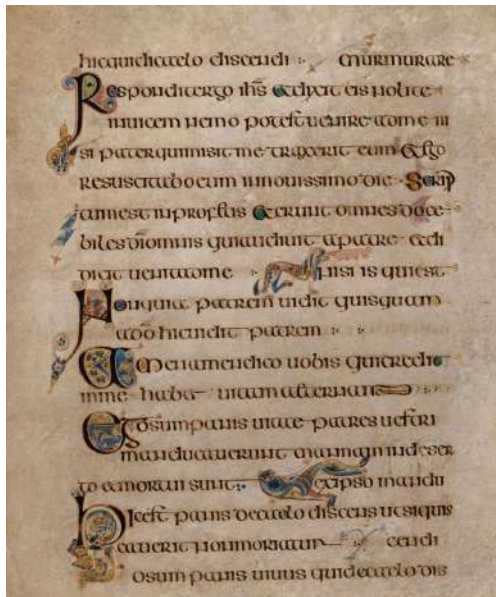 hicquiadicaelo discendi murmurare
Respondit ergo ihs et dixit eis nolite
inuicem nemo potest uenire adme ni
si pater quimisit me traxerit eum et ego
resuscitabo eum innouissimo die Scrip
tum est inprophis et erunt omnes doce
biles di omnis quiaudiuit apatre et di
dicit uenit adme nisi is quiest
Non quia patrem uidit quisquam
ado hic uidit patrem
Amen amen dico uobis qui credit
inme habet uitam aeternam
Egosum panis uitae patres uestri
manducauerunt manna in deser
to et mortui sunt exipso mandu
Hicest panis decaelo discens ut siquis
cauerit non moriatur cendi
osum panis uiuus qui decaelo dis